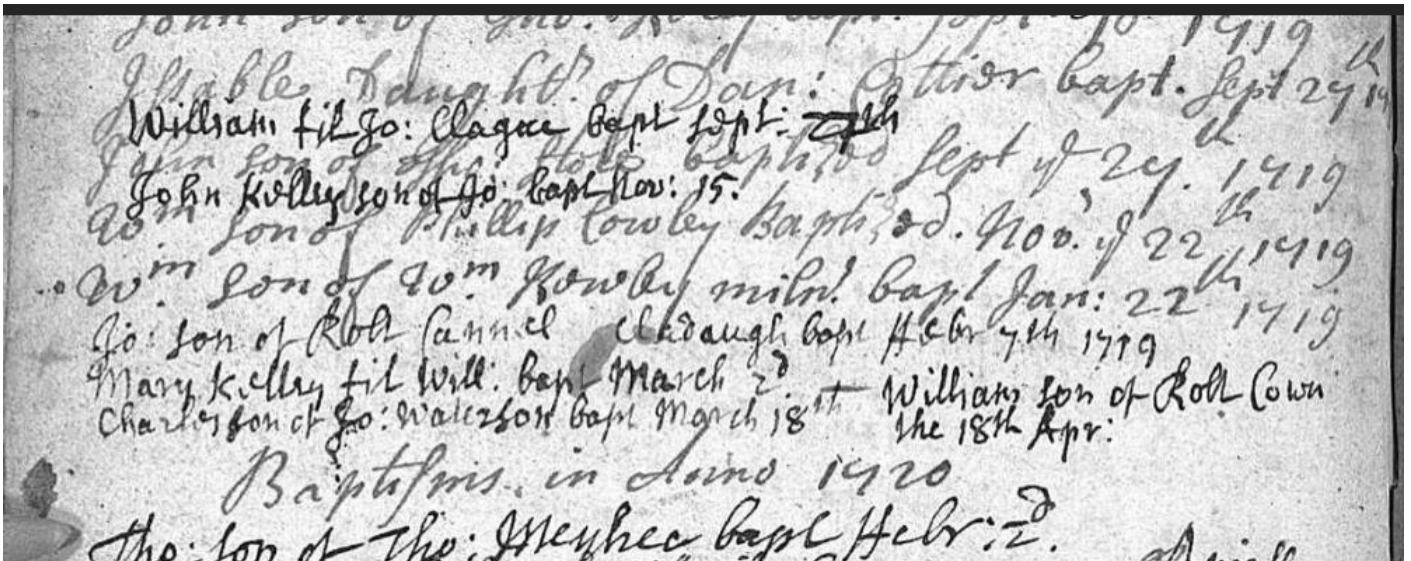 John son of bapt. Sept 1719
Issable Daught'r of Dan: Cottier bapt. Sept 27th 19
William fil Jo: Clague bapt sept: 27th
John son of baptized Sept ye 27th. 1719
John Kelley son of Jo: bapt Nov: 15.
Wm son of Phillip Cowley Baptized. Nov'r ye 22th 1719
Wm son of Wm Kewley miln'r bapt Jan: 22th 1719
Jo: son of Robt Cannel bapt Febr 7th 1719
Mary Kelley fil Will: bapt March 2d — William son of Robt Cown
Charles son of Jo: Waterson bapt March 18th the 18th Apr:
Baptisms in Anno 1720
Tho: son of Tho: bapt Febr: 2d.